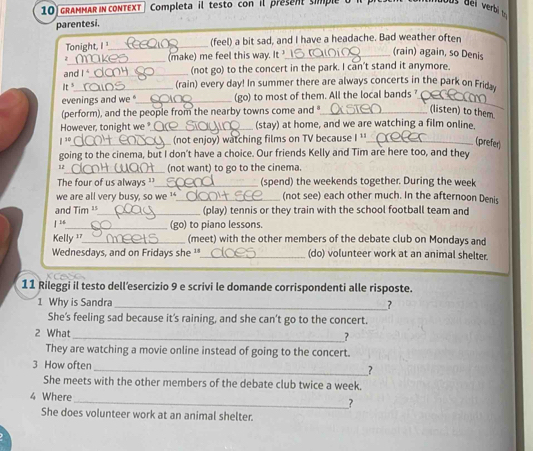 10 GRAMMAR IN CONTEXT Completa il testo con il present simple o il dei verbi
parentesi.
Tonight, I ¹ feeling (feel) a bit sad, and I have a headache. Bad weather often
² makes (make) me feel this way. It ³ is raining (rain) again, so Denis
and I ⁴ don't go (not go) to the concert in the park. I can't stand it anymore.
It ⁵ rains (rain) every day! In summer there are always concerts in the park on Friday
evenings and we ⁶ going (go) to most of them. All the local bands ⁷ perform
(perform), and the people from the nearby towns come and ⁸ listen (listen) to them.
However, tonight we ⁹ are staying (stay) at home, and we are watching a film online.
I ¹⁰ don't enjoy (not enjoy) watching films on TV because I ¹¹ prefer (prefer)
going to the cinema, but I don't have a choice. Our friends Kelly and Tim are here too, and they
¹² don't want (not want) to go to the cinema.
The four of us always ¹³ spend (spend) the weekends together. During the week
we are all very busy, so we ¹⁴ don't see (not see) each other much. In the afternoon Denis
and Tim ¹⁵ play (play) tennis or they train with the school football team and
I ¹⁶ go (go) to piano lessons.
Kelly ¹⁷ meets (meet) with the other members of the debate club on Mondays and
Wednesdays, and on Fridays she ¹⁸ does (do) volunteer work at an animal shelter.
11 Rileggi il testo dell'esercizio 9 e scrivi le domande corrispondenti alle risposte.
1 Why is Sandra ?
She's feeling sad because it's raining, and she can't go to the concert.
2 What ?
They are watching a movie online instead of going to the concert.
3 How often ?
She meets with the other members of the debate club twice a week.
4 Where ?
She does volunteer work at an animal shelter.